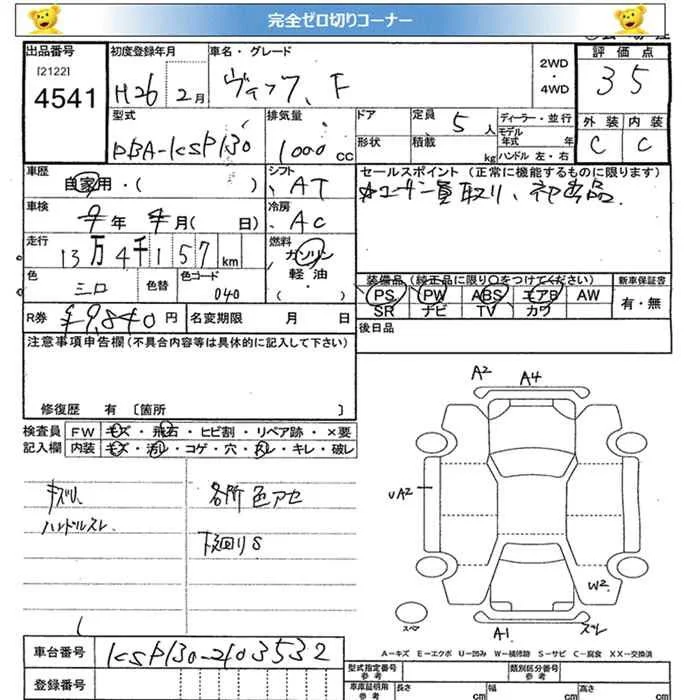 完全ゼロ切りコーナー
出品番号 初度登録年月 車名・グレード 評価点
[2122] 2WD・4WD
4541 H26 2月 ヴィッツ、F 3 5
型式 排気量 ドア 定員 5人 ディーラー・並行 外装 内装
DBA-KSP130 1000cc 形状 積載 kg モデル年式 年 ハンドル 左・右 C C
車歴 シフト セールスポイント (正常に機能するものに限ります)
自家用・( ) AT ☆ユーザー買取り、初出品.
車検 冷房
年 月( 日) AC
走行 燃料
13万4千157km ガソリン
色 色替 色コード 軽油 装備品(純正品に限り○をつけてください) 新車保証書
040 ・( ) PS PW ABS エアB AW 有・無
SR ナビ TV カワ
R券 ¥9,840円 名変期限 月 日 後日品
注意事項申告欄(不具合内容等は具体的に記入して下さい)
修復歴 有 〔箇所 〕
検査員 FW キズ・飛石・ヒビ割・リペア跡・×要
記入欄 内装 キズ・汚レ・コゲ・穴・スレ・キレ・破レ
キズU、 各所色アセ
ハンドルスレ 下廻りS
A2 A4
UA2
W2
スペア A1 スレ
A-キズ E-エクボ U-凹み W-補修跡 S-サビ C-腐食 XX-交換済
車台番号 KSP130-2103532
登録番号
型式指定番号 参考 類別区分番号 参考
車庫証明用 参考 長さ cm 幅 cm 高さ cm